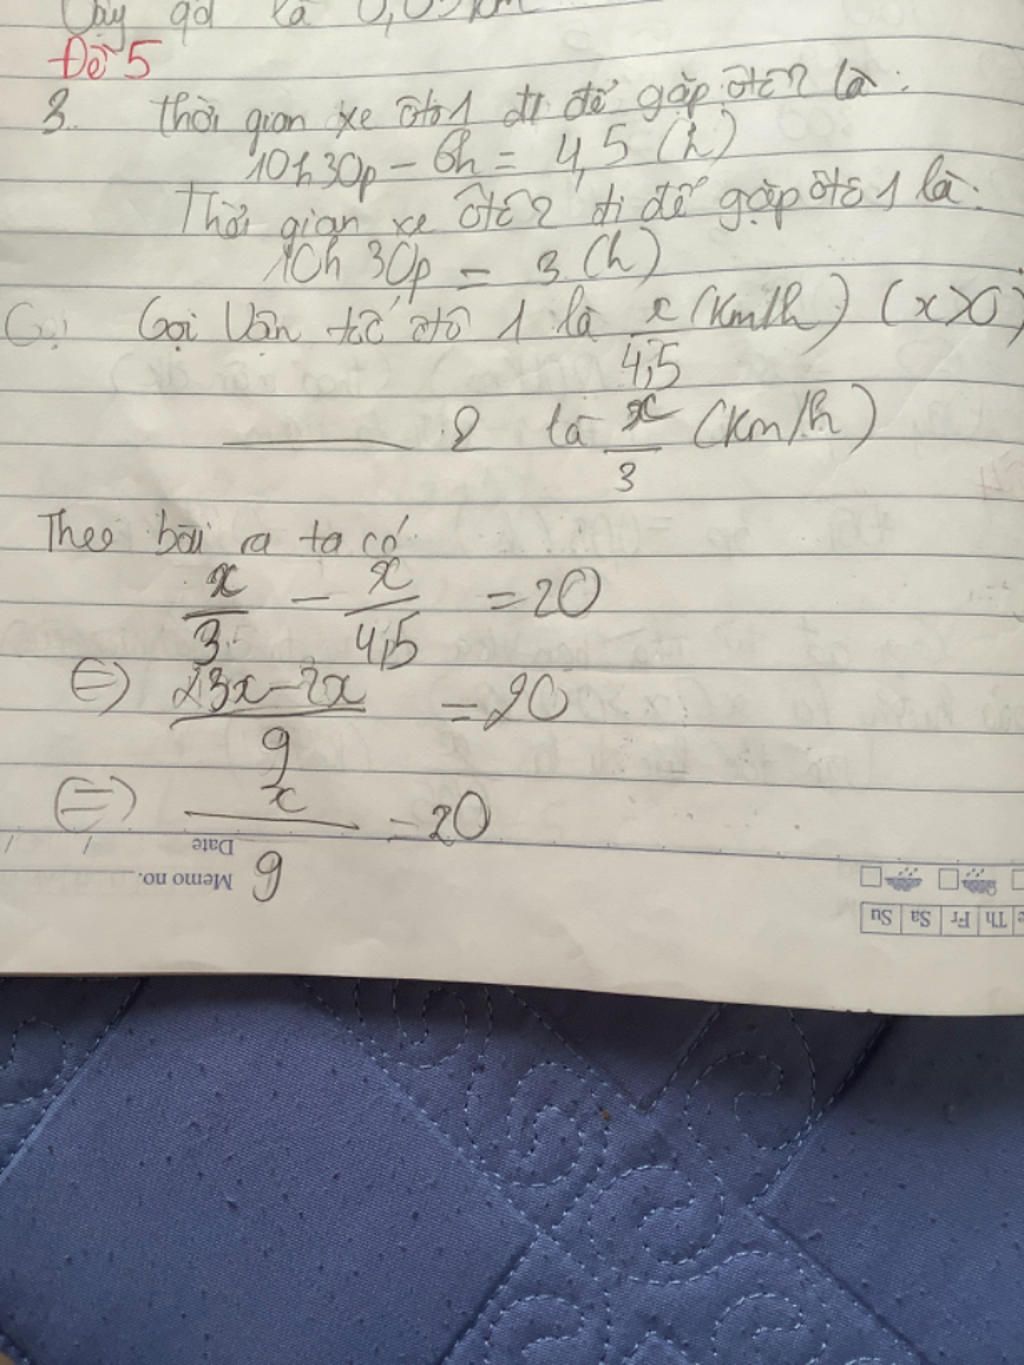 Vậy qđ là 0,05 km
Đề 5
3. Thời gian xe ôtô 1 đi để gặp ôtô 2 là:
10h30p - 6h = 4,5 (h)
Thời gian xe ôtô 2 đi để gặp ôtô 1 là:
10h 30p = 3 (h)
Gọi Gọi Vận tốc ôtô 1 là x/4,5 (km/h) (x>0)
2 là x/3 (km/h)
Theo bài ra ta có
x/3 - x/4,5 = 20
(=) 3x-2x/9 = 20
(=) x/9 = 20
Date
Memo no.
Th Fr Sa Su